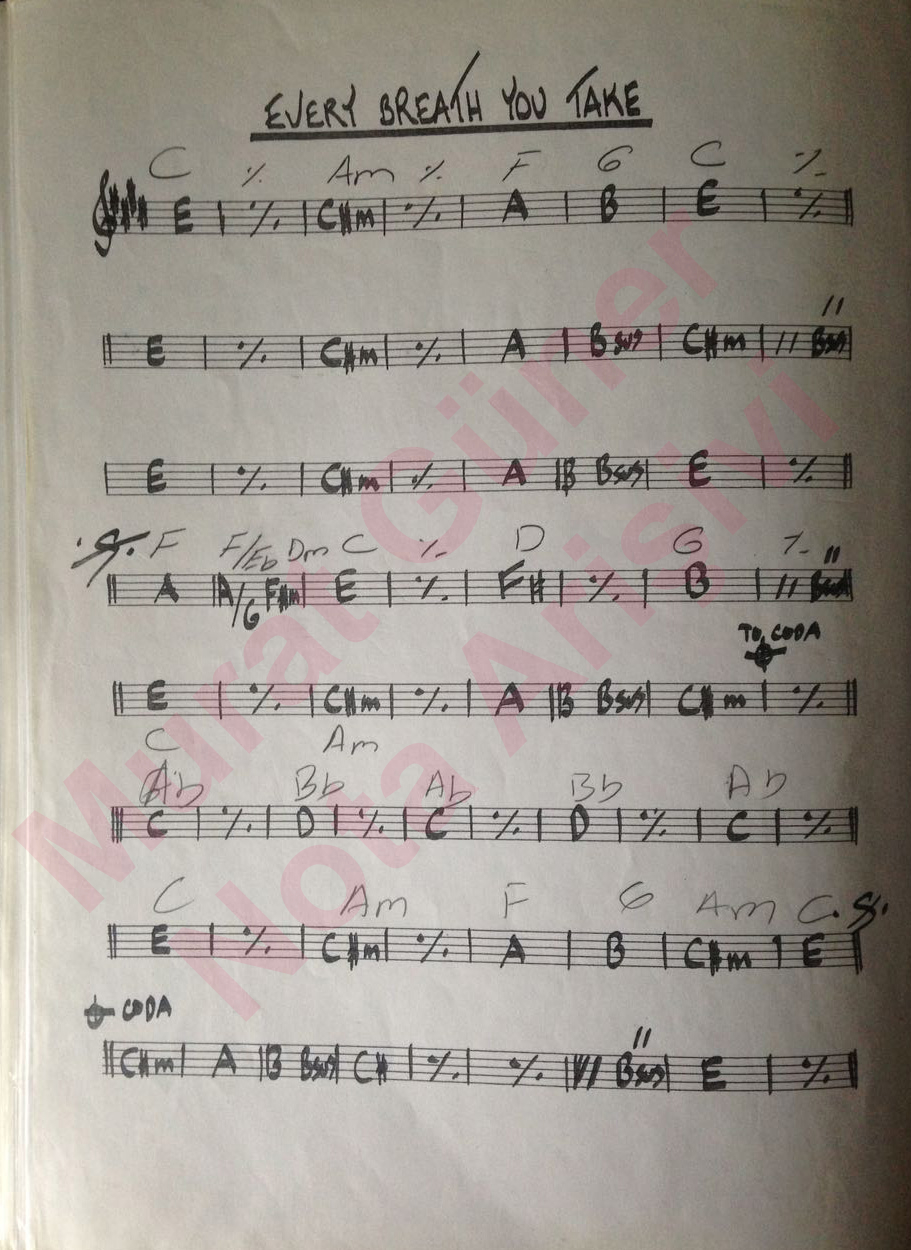 EVERY BREATH YOU TAKE
C % Am % F G C %
E | % | C#m | % | A | B | E | % ||
//
|| E | % | C#m | % | A | Bsus | C#m | // Bsus |
| E | % | C#m | % | A | B Bsus | E | % ||
F F/Eb Dm C % D G %
//
|| A | A/G F#m | E | % | F# | % | B | // Bsus |
TO CODA
|| E | % | C#m | % | A | B Bsus | C#m | % ||
C Am
Ab Bb Ab Bb Ab
|| C | % | D | % | C | % | D | % | C | % ||
C Am F G Am C
|| E | % | C#m | % | A | B | C#m | E ||
CODA
//
|| C#m | A | B Bsus | C# | % | % | // Bsus | E | % ||
Murat Güner
Nota Arisivi